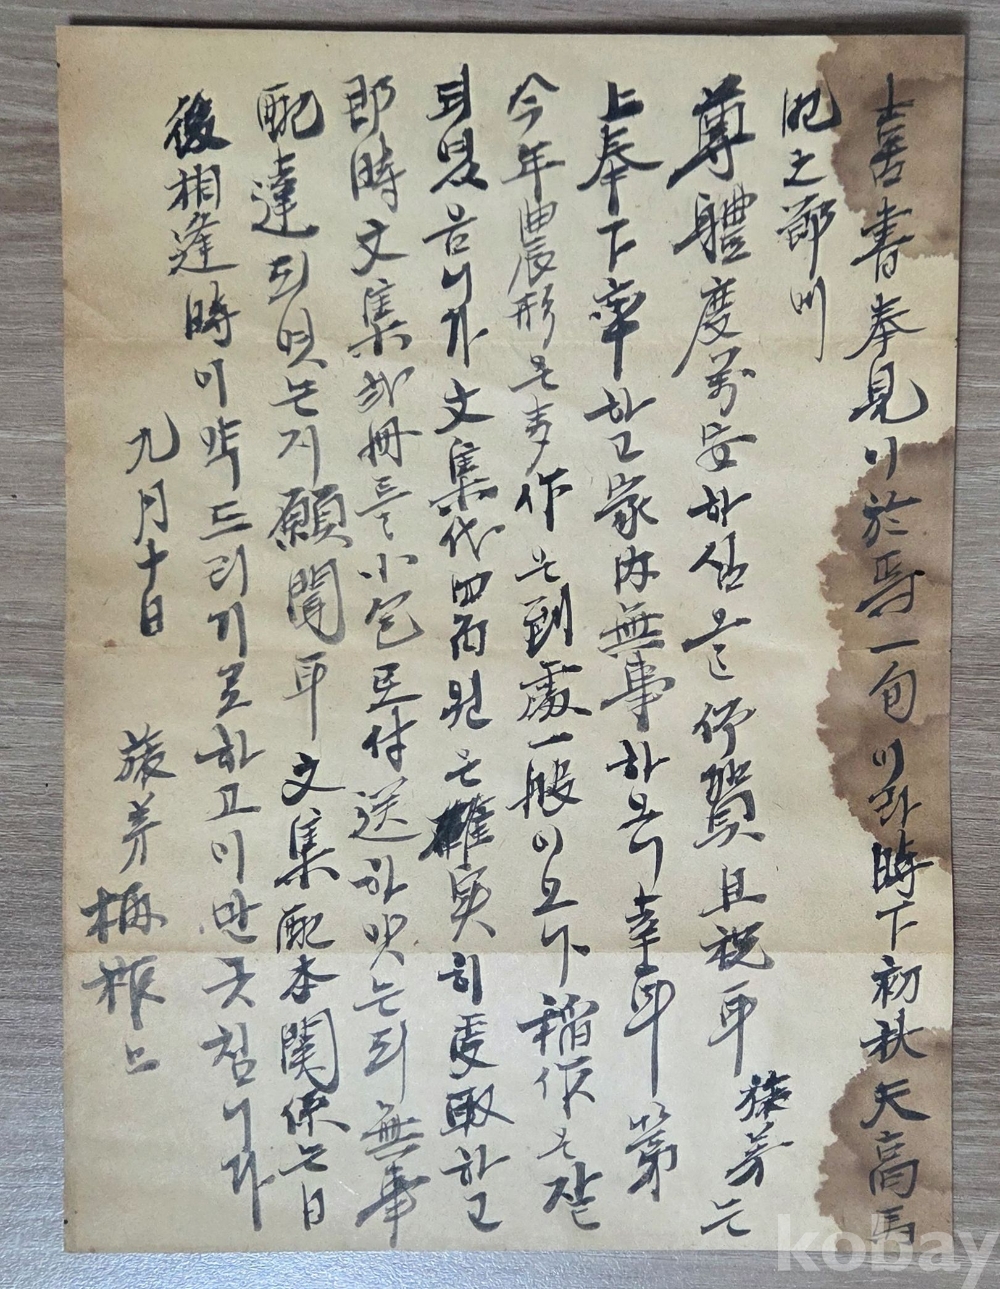 喜書奉見이於焉一旬이라時下初秋天高馬
肥之節에
尊體度萬安하심을仰賀且祝耳 族弟는
上奉下率하고家內無事하온니幸耳 第
今年農形은麥作은到處一般이요나稻作은잘
되엿음니가文集代四百원은確实히受取하고
即時文集貳冊을小包로付送하엿는대無事
配達되엿는지願聞耳文集配本関係는日
後相逢時이약드리기로하고이만긋침니가
九月十日 族弟 植 上
kobay